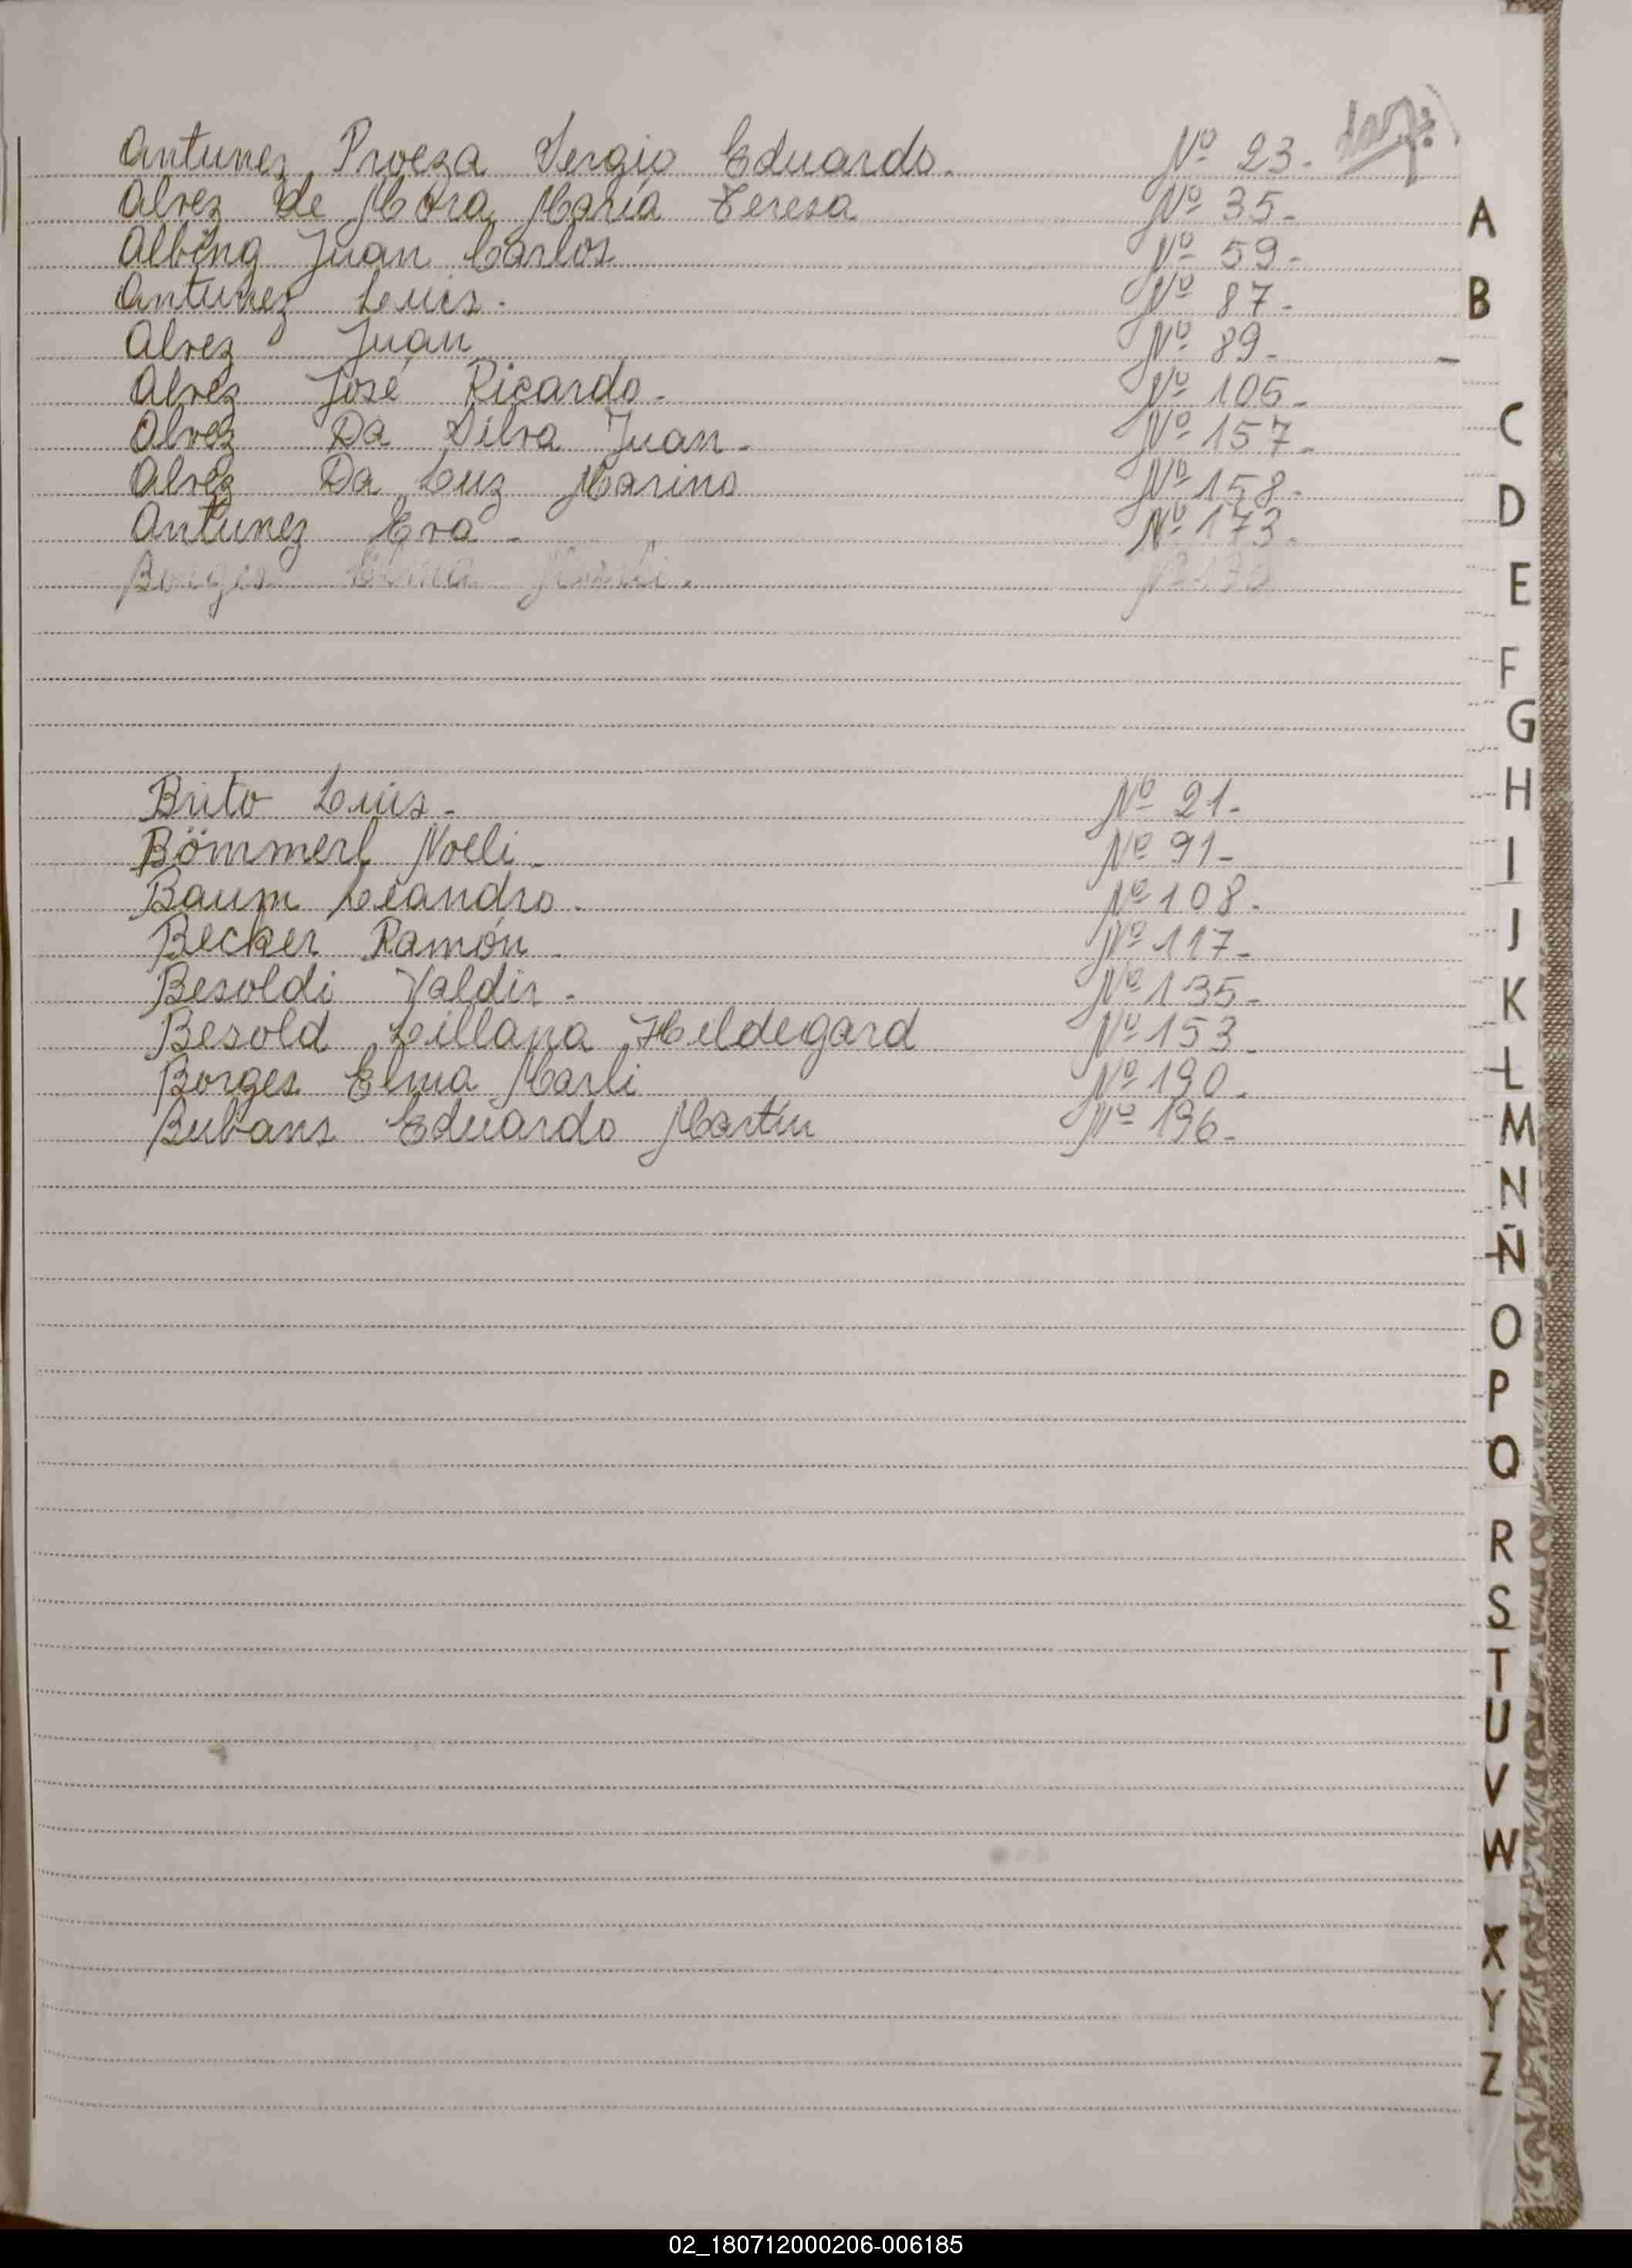 Antunez Proeza Sergio Eduardo. Nº 23.
Alvez de Mora María Teresa Nº 35-
Albing Juan Carlos Nº 59-
Antunez Luis. Nº 87-
Alvez Juan Nº 89-
Alvez José Ricardo- Nº 105-
Alvez Da Silva Juan- Nº 157-
Alvez Da Luz Marino Nº 158-
Antunez Eva - Nº 173-
Borges Elma Marli.
Brito Luis- Nº 21-
Bömmerl Noeli- Nº 91-
Baum Leandro- Nº 108-
Becker Ramón - Nº 117-
Besoldi Valdir- Nº 135-
Besold Lillana Hildegard Nº 153-
Borges Elma Marli Nº 190-
Bubans Eduardo Martín Nº 196-
A
B
C
D
E
F
G
H
I
J
K
L
M
N
Ñ
O
P
Q
R
S
T
U
V
W
X
Y
Z
02_180712000206-006185